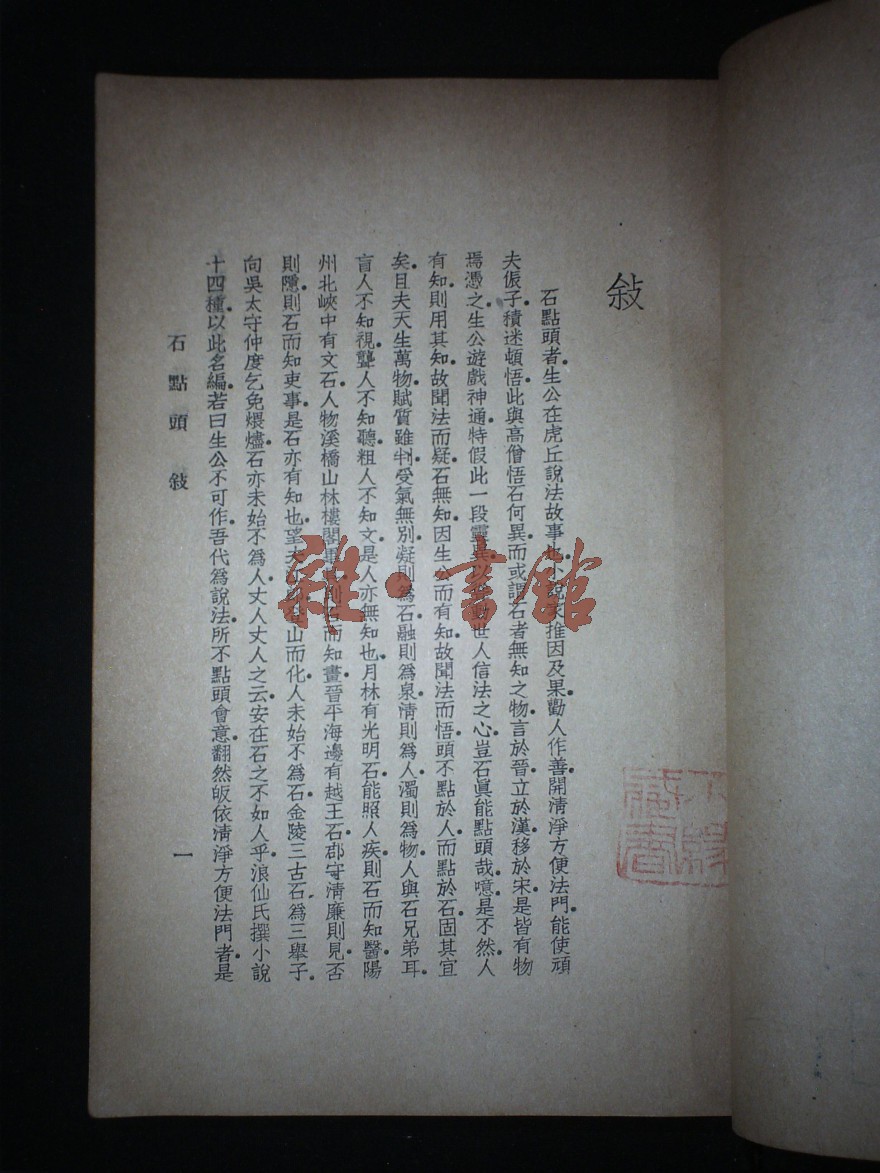 敍
石點頭者生公在虎丘說法故事也小說家推因及果勸人作善開清淨方便法門能使頑
夫倀子積迷頓悟此與高僧悟石何異而或謂石者無知之物言於晉立於漢移於宋是皆有物
焉憑之生公遊戲神通特假此一段靈異以聳動世人信法之心豈石眞能點頭哉噫是不然人
有知則用其知故聞法而疑石無知因生公而有知故聞法而悟頭不點於人而點於石固其宜
矣且夫天生萬物賦質雖判受氣無別凝則爲石融則爲泉清則爲人濁則爲物人與石兄弟耳
盲人不知視聾人不知聽粗人不知文是人亦無知也月林有光明石能照人疾則石而知醫陽
州北峽中有文石人物溪橋山林樓閣畢具則石而知畫晉平海邊有越王石郡守清廉則見否
則隱則石而知吏事是石亦有知也望夫江郎登山而化人未始不爲石金陵三古石爲三舉子
向吳太守仲度乞免煨燼石亦未始不爲人丈人丈人之云安在石之不如人乎浪仙氏撰小說
十四種以此名編若曰生公不可作吾代爲說法所不點頭會意翻然皈依清淨方便法門者是
石點頭 敍
一
雜·書館